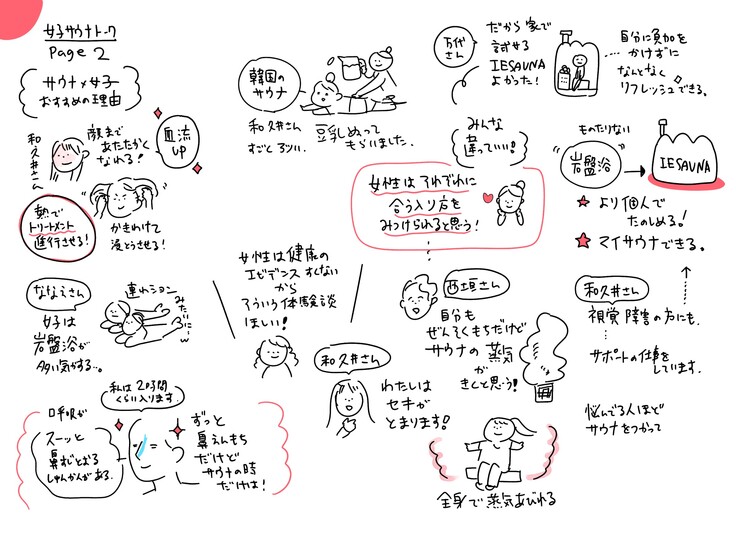 女子サウナトーク
Page 2
サウナ×女子
おすすめの理由
和久井さん
顔まで
あたたかく
なれる！
血流
UP
熱で
トリートメント
進行させる！
かきわけて
浸とうさせる！
韓国の
サウナ
和久井さん
すごとろツい.
豆乳ぬって
もらいました.
万代
さん
だから家で
試せる
IESAUNA
よかった！
自分に負加を
かけずに
なんとなく
リフレッシュできる。
みんな
違っていい！
女性はそれぞれに
合う入り方を
みつけられると思う！
ものたりない
岩盤浴
IESAUNA
より個人で
たのしめる！
マイサウナできる。
ななえさん
女子は
岩盤浴が
多い気がする…。
連れション
みたいにーw
女性は健康の
エビデンスすくない
から
そういう体験談
ほしい！
西垣さん
自分も
ぜんそくもちだけど
サウナの蒸気
が
きくと思う！
和久井さん
視覚障害の方にも.
サポートの仕事を
しています.
悩んでる人ほど
サウナをつかって
和久井さん
わたしは
セキが
とまります！
私は2時間
くらい入ります
口呼吸が
スーッと
鼻すじとおる
しゅんかんがある.
ずっと
鼻えんもち
だけど
サウナの時
だけは！
全身で蒸気あびれる